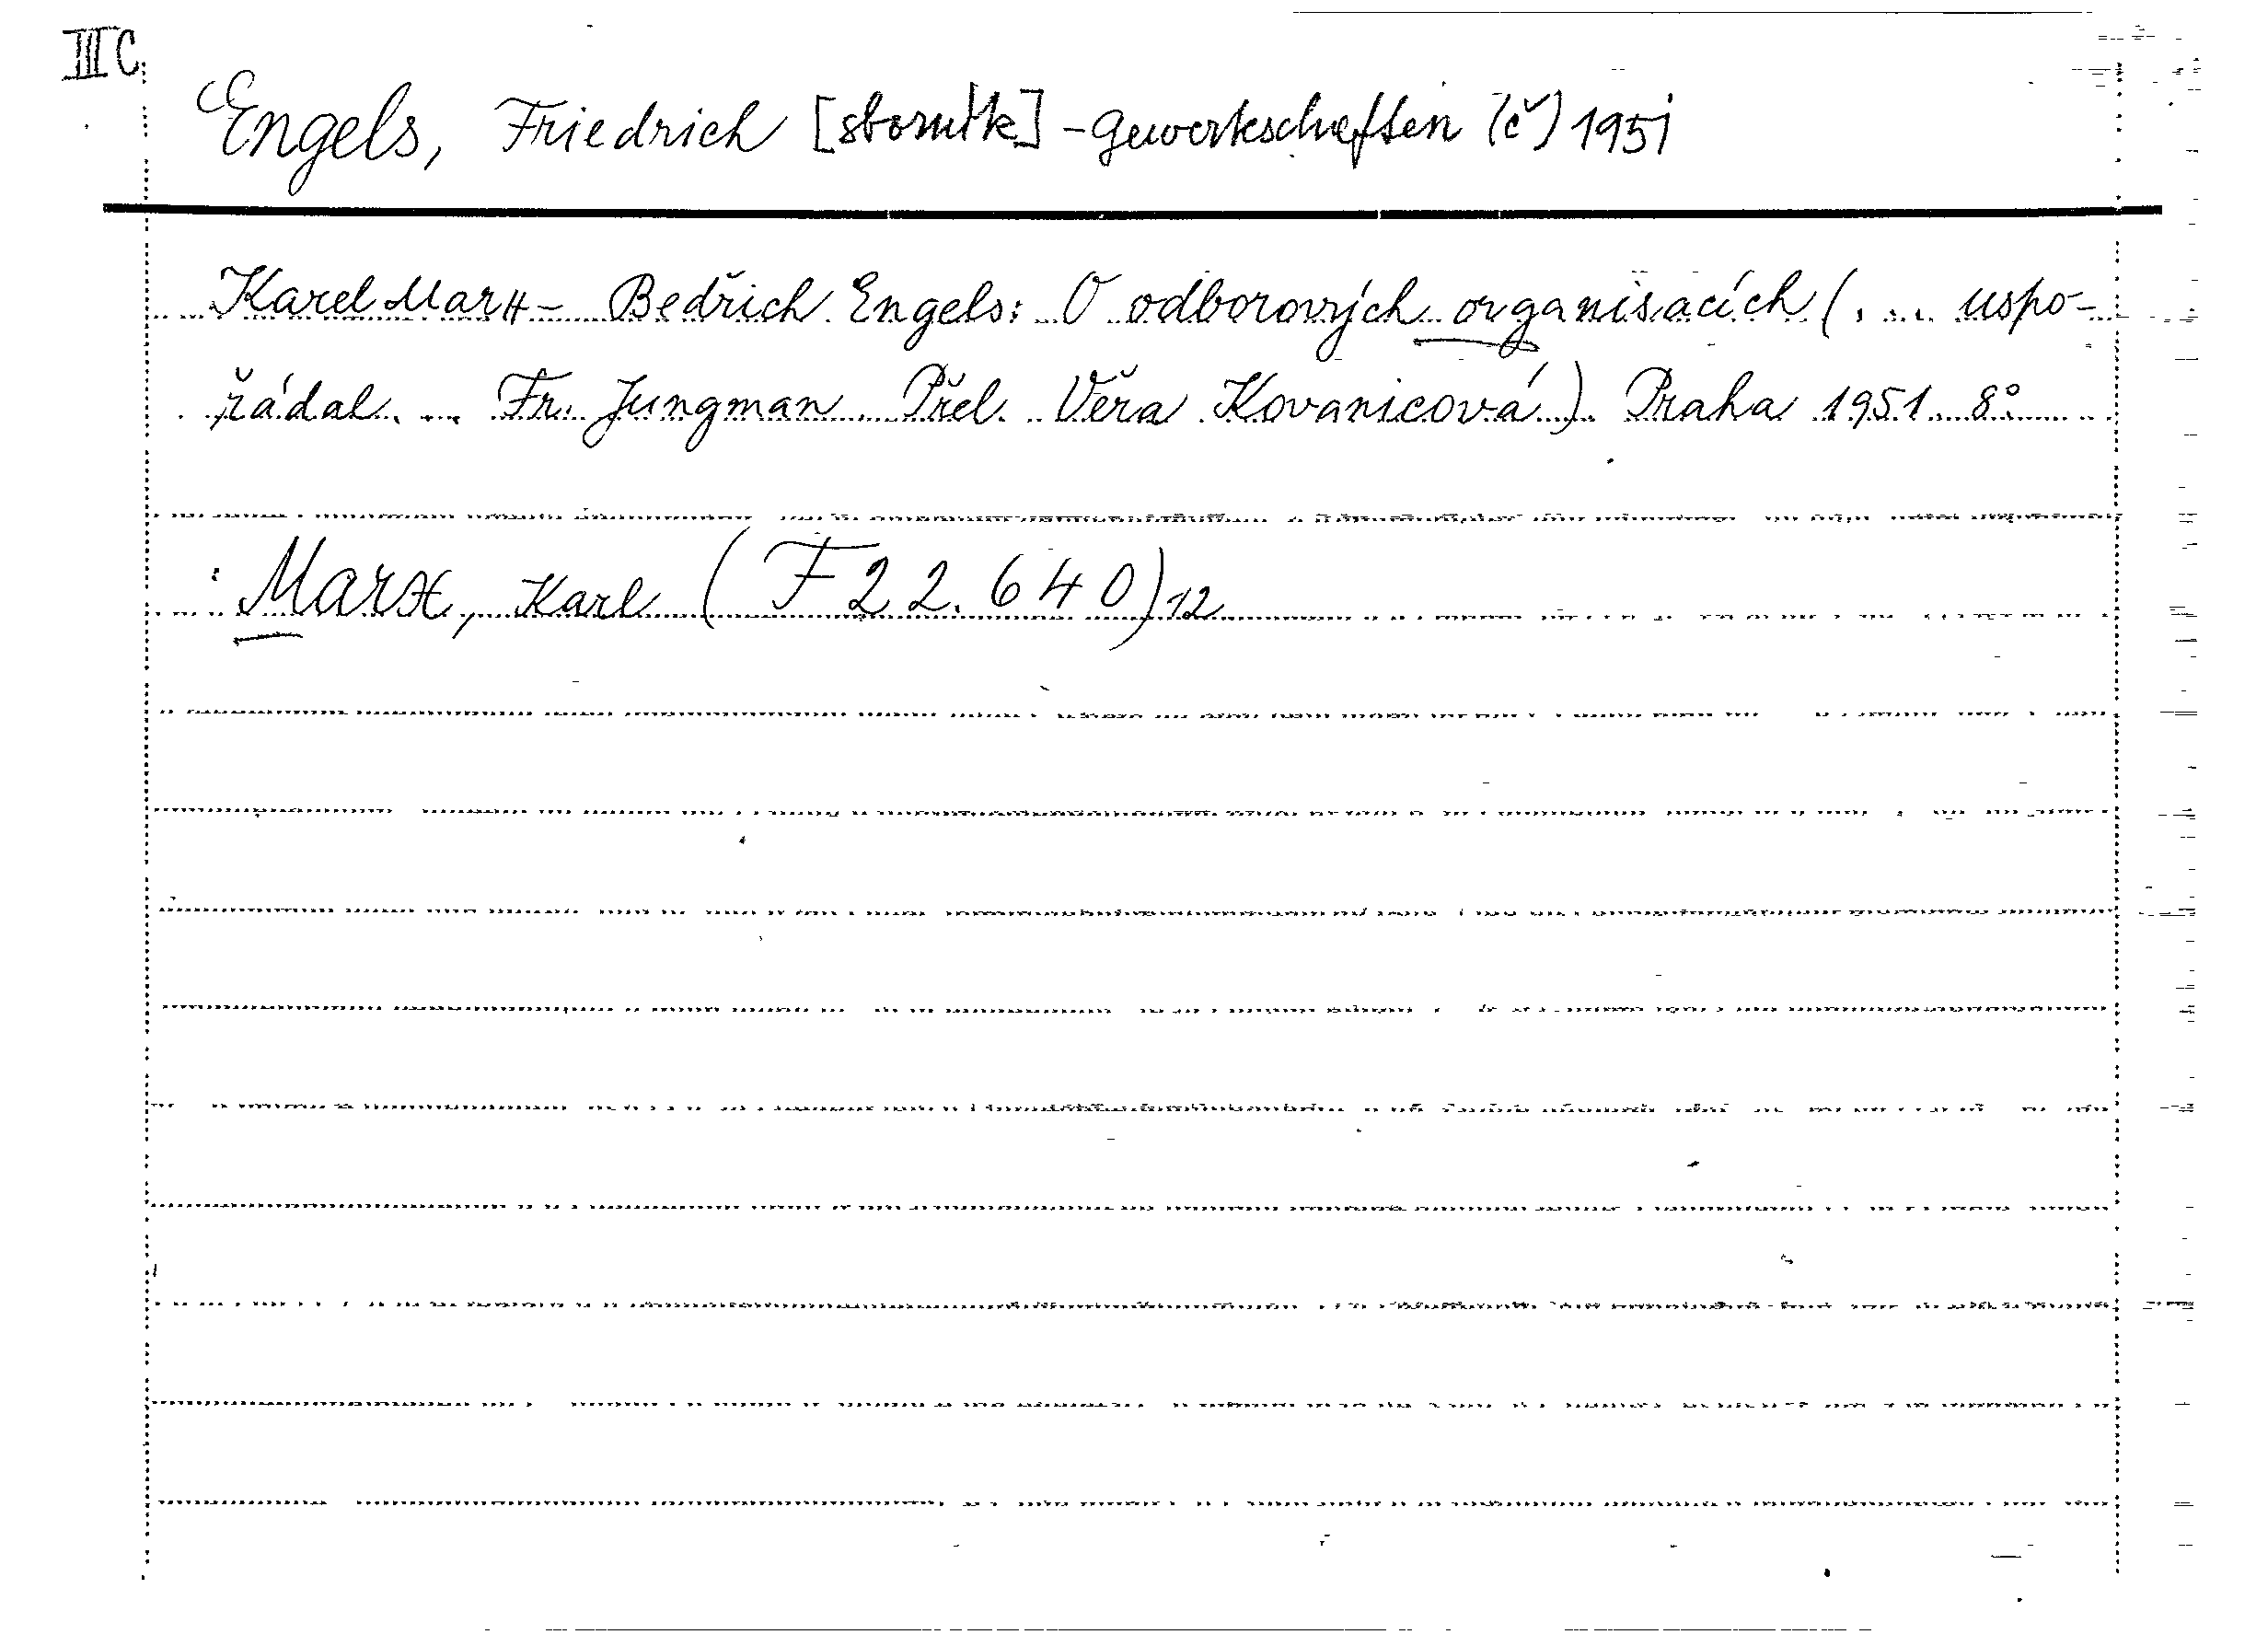 III C
Engels, Friedrich [sborník] - Gewerkschaften (č) 1951
Karel Marx - Bedřich Engels: O odborových organisacích (... uspo-
řádal ... Fr. Jungman. Přel. Věra Kovanicová). Praha 1951 8°
: Marx, Karl (F 22.640) 12